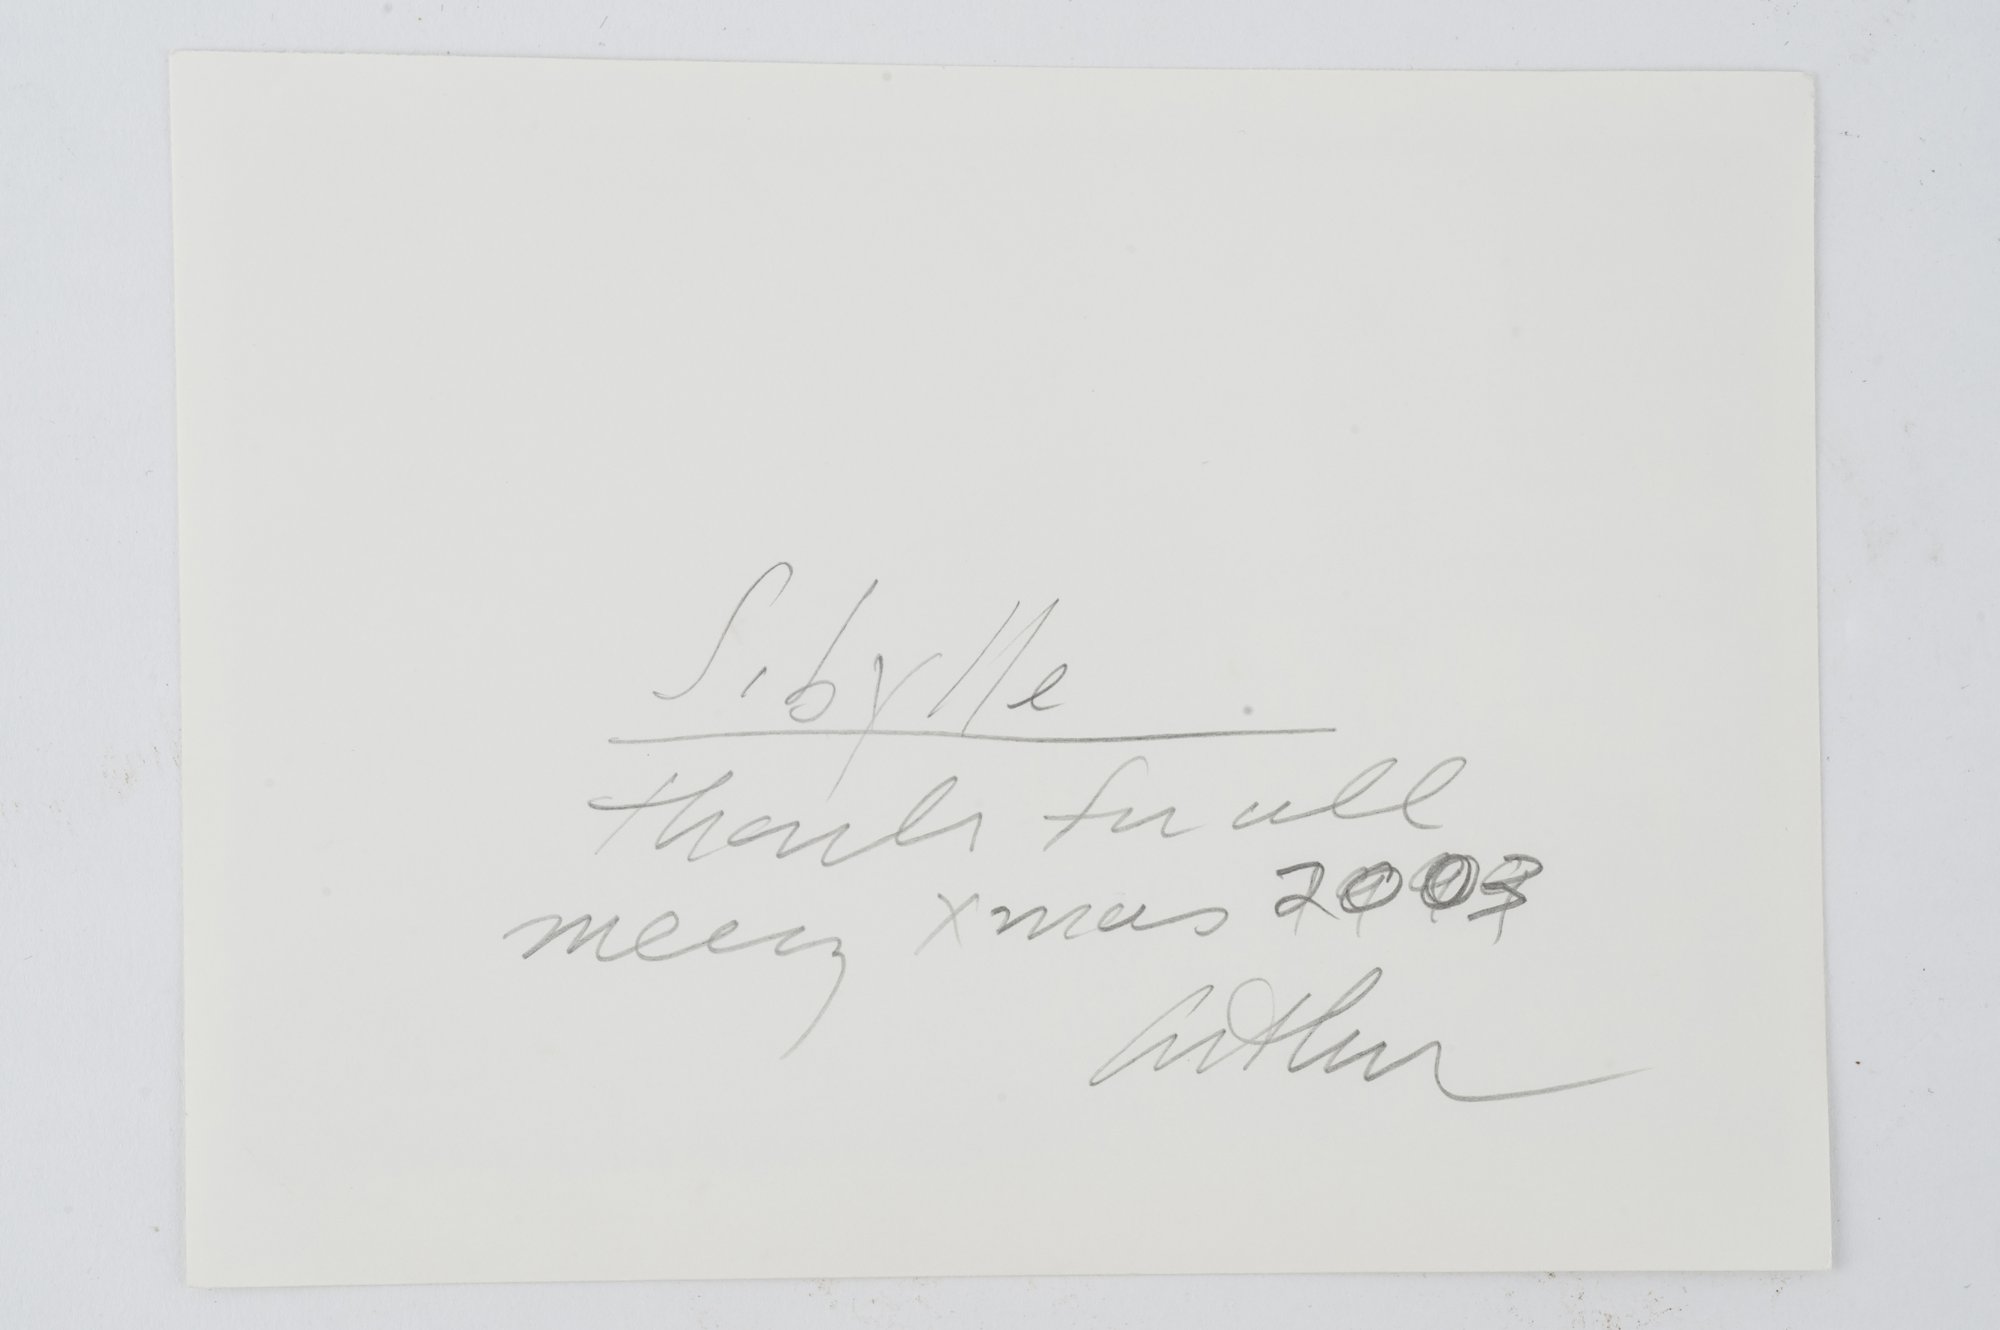 Sibylle
thanks for all
merry xmas 2003
Arthur